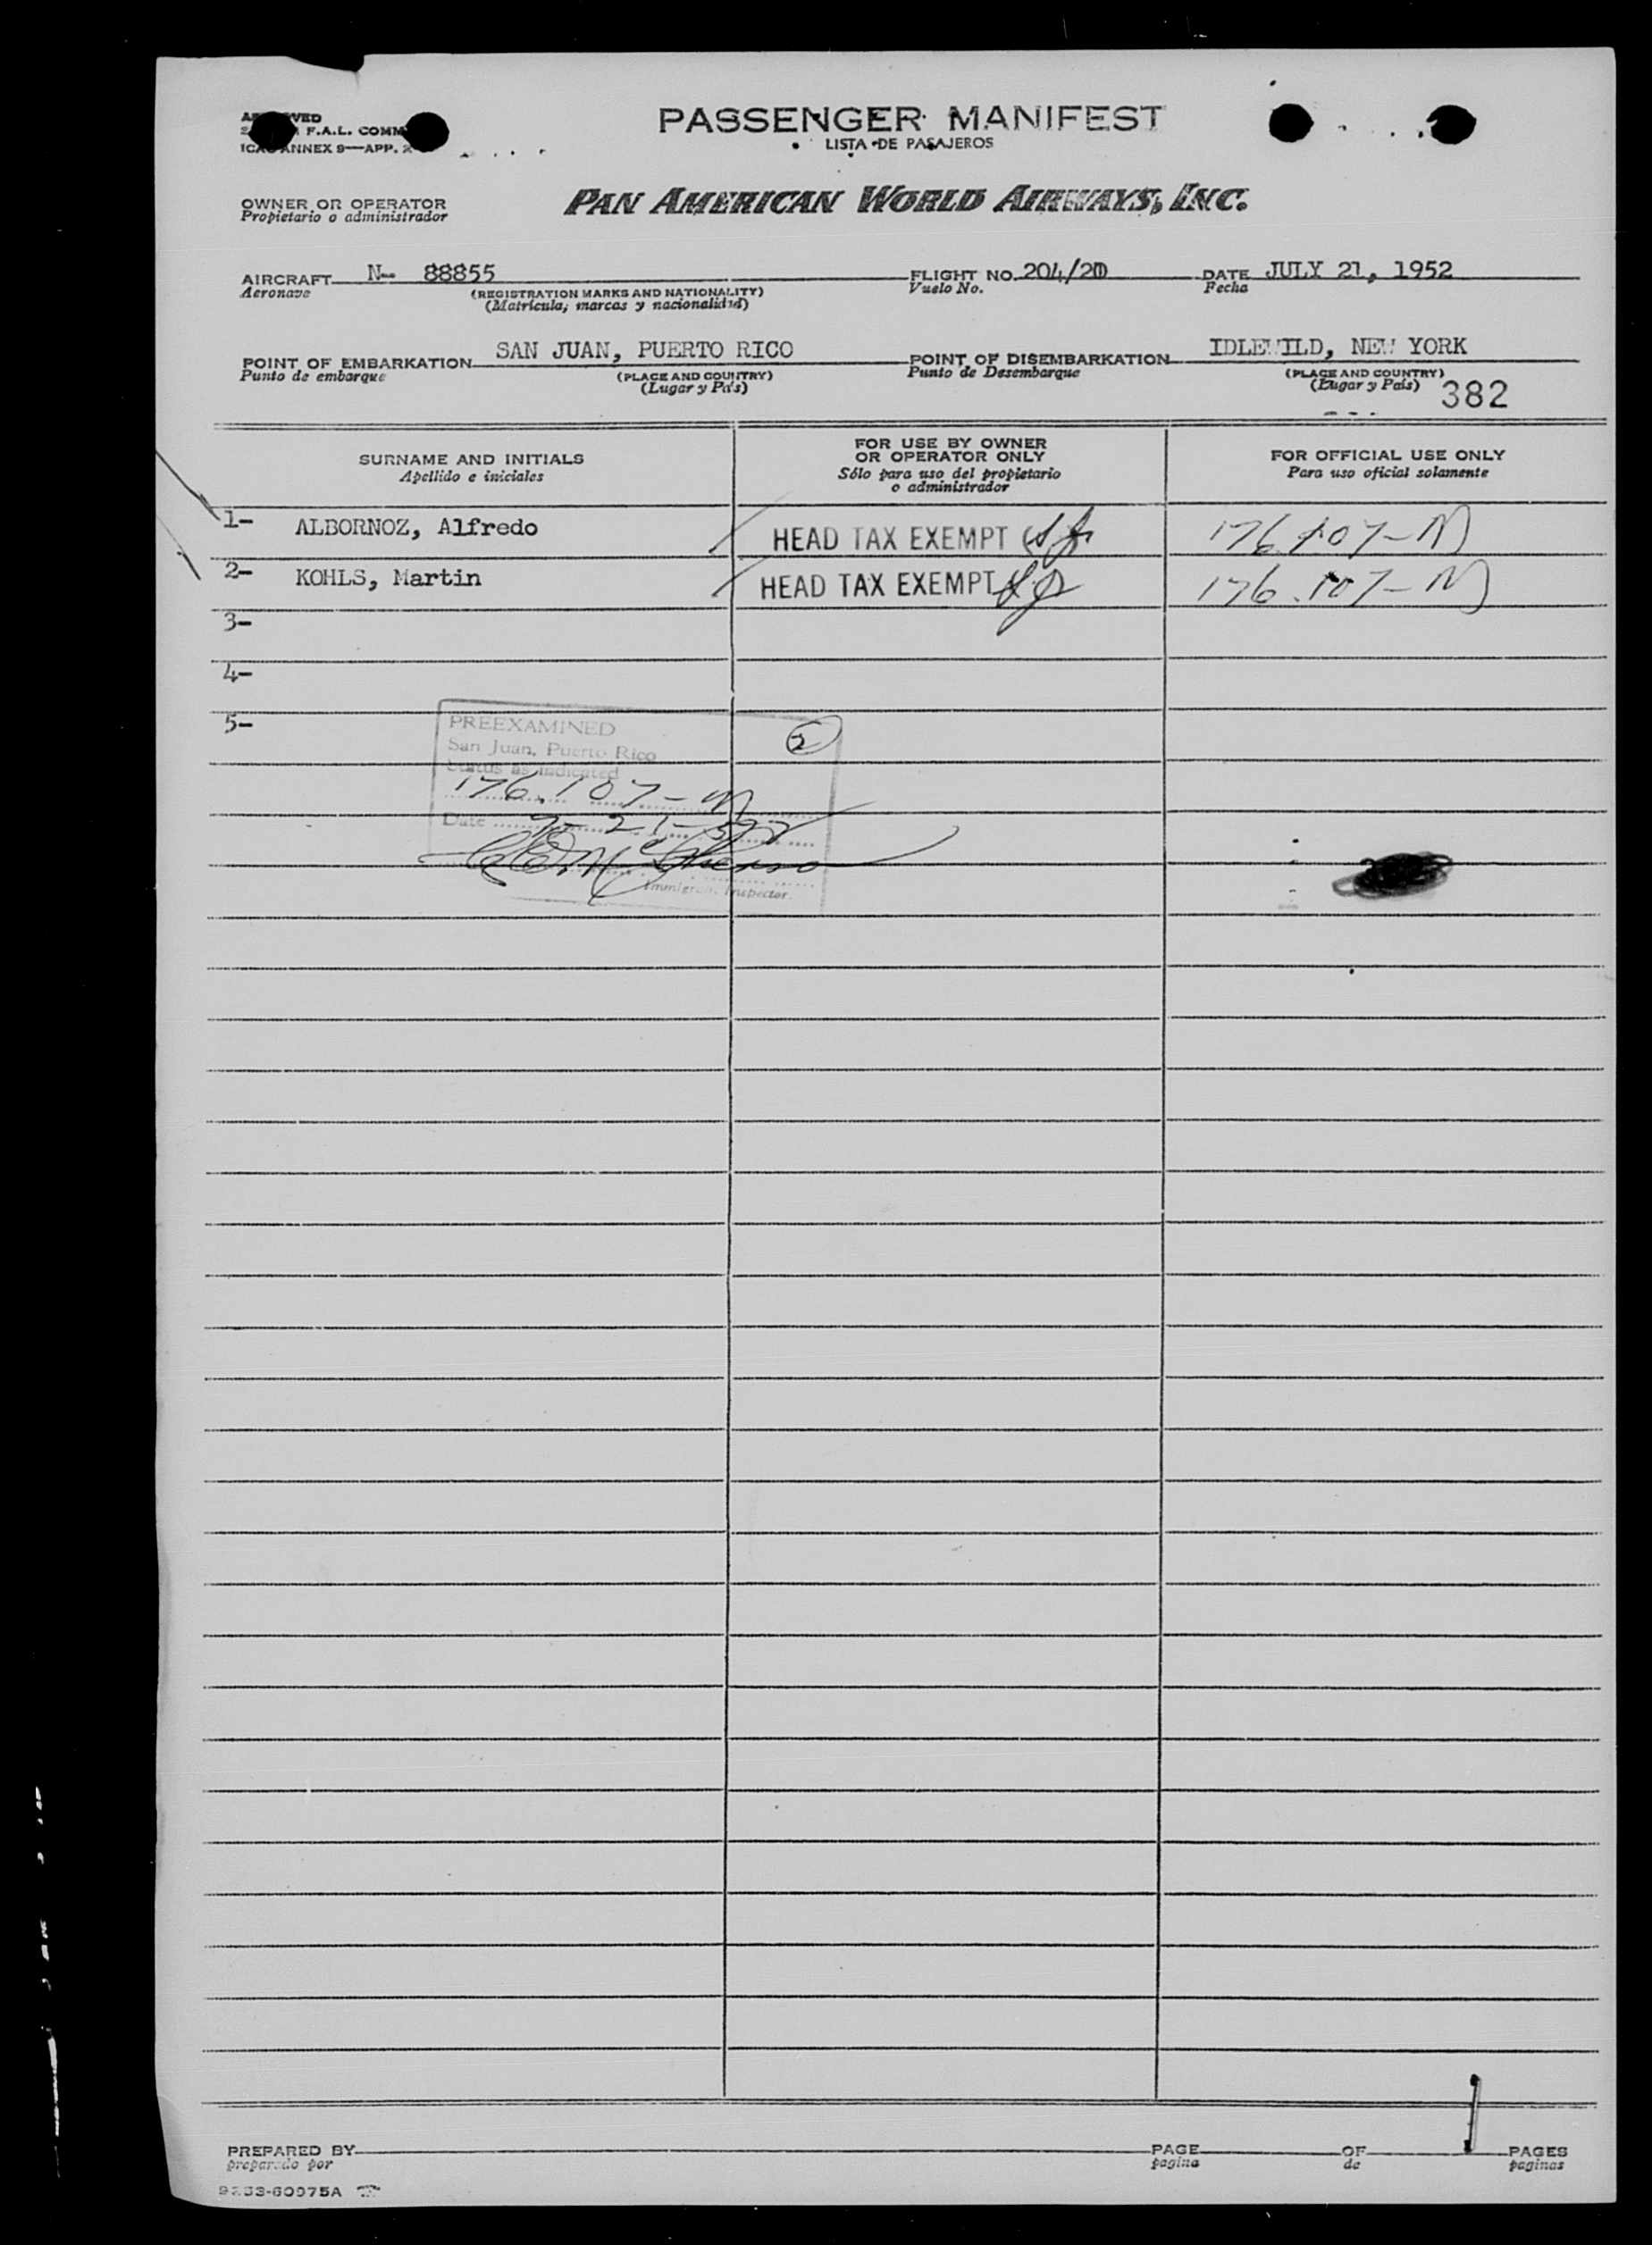 PASSENGER MANIFEST
LISTA DE PASAJEROS
F.A.L. COMM
ANNEX 9—APP.
OWNER OR OPERATOR
Propietario o administrador
PAN AMERICAN WORLD AIRWAYS, INC.
AIRCRAFT N- 88855 FLIGHT NO. 204/20 DATE JULY 21, 1952
Aeronave (REGISTRATION MARKS AND NATIONALITY) Vuelo No. Fecha
(Matrícula, marcas y nacionalidad)
POINT OF EMBARKATION SAN JUAN, PUERTO RICO POINT OF DISEMBARKATION IDLEWILD, NEW YORK
Punto de embarque (PLACE AND COUNTRY) Punto de Desembarque (PLACE AND COUNTRY)
(Lugar y País) (Lugar y País) 382
SURNAME AND INITIALS FOR USE BY OWNER OR OPERATOR ONLY FOR OFFICIAL USE ONLY
Apellido e iniciales Sólo para uso del propietario o administrador Para uso oficial solamente
1- ALBORNOZ, Alfredo HEAD TAX EXEMPT 176.107-M
2- KOHLS, Martin HEAD TAX EXEMPT 176.107-M
3-
4-
5-
PREEXAMINED 2
San Juan, Puerto Rico
Status as indicated
176.107-M
Date 7-21-52
Immigrant Inspector
PREPARED BY PAGE OF 1 PAGES
preparado por pagina de paginas